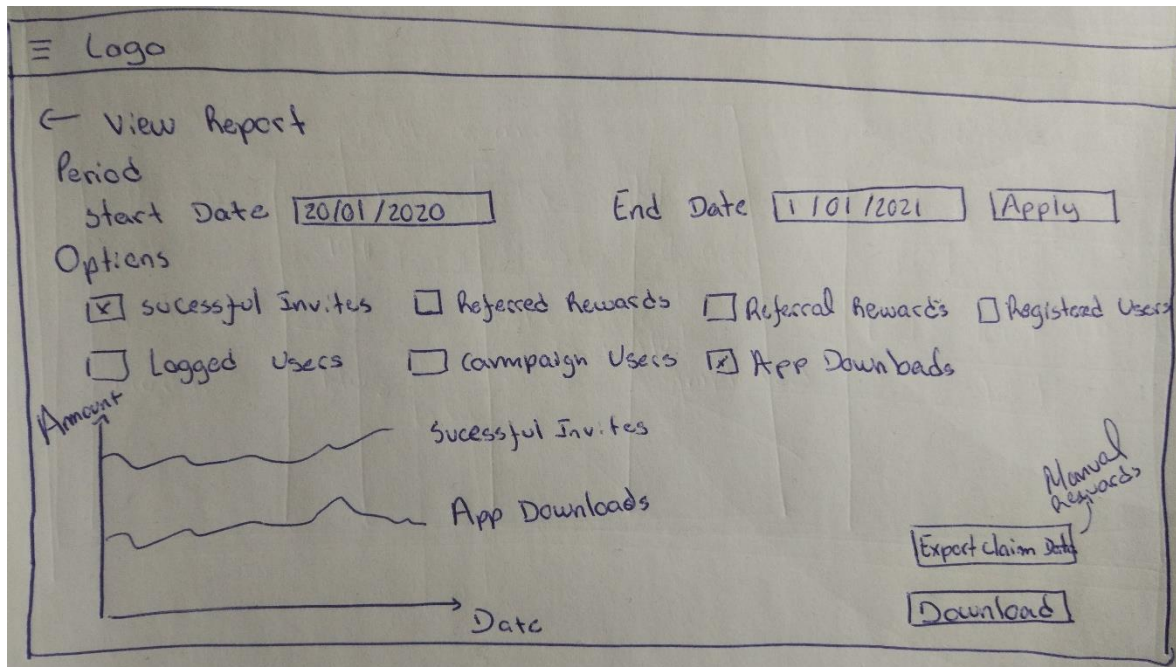 Logo
← View Report
Period
Start Date 20/01/2020 End Date 1/01/2021 Apply
Options
sucessful Invites Referred Rewards Referral Rewards Registered Users
Logged Users Campaign Users App Downloads
Amount
Sucessful Invites
App Downloads
Manual
Rewards
Export Claim Data
Download
Date